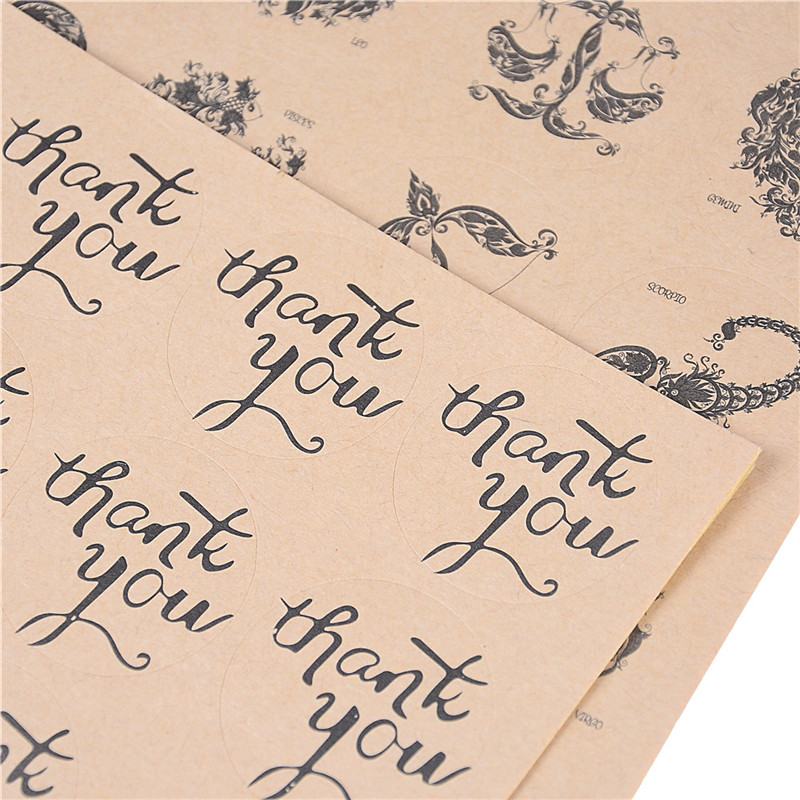 LEO
PISCES
GEMINI
SCORPIO
thank
you
thank
you
thank
you
thank
you
thank
you
thank
VIRGO